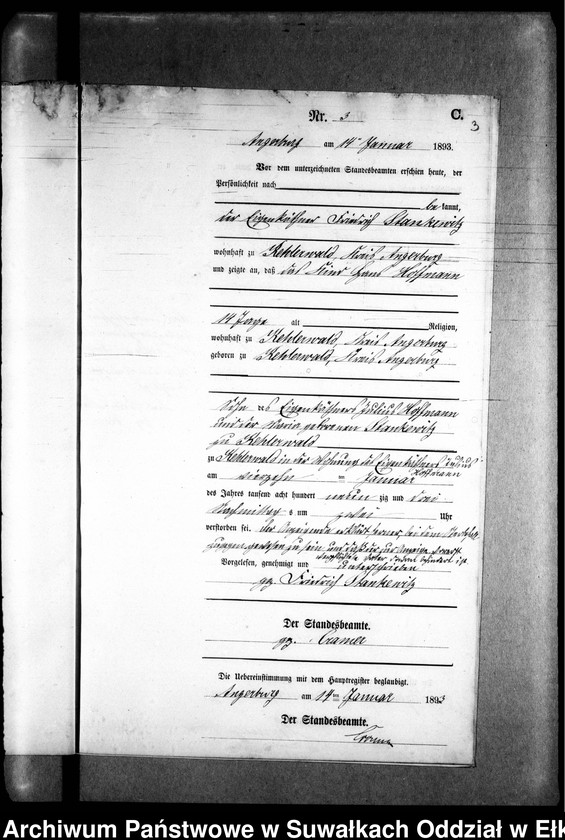 Nr. 3
C.
3
Angerburg am 14ten Januar 1893.
Vor dem unterzeichneten Standesbeamten erschien heute, der
Persönlichkeit nach
be kannt,
der Eigenkäthner Friedrich Stankewitz
wohnhaft zu Kehlerwald, Kreis Angerburg
und zeigte an, daß das Kind Hans Hoffmann
14 Tage alt Religion,
wohnhaft zu Kehlerwald, Kreis Angerburg
geboren zu Kehlerwald, Kreis Angerburg
Sohn des Eigenkäthners Julius Hoffmann
und der Maria geborenen Stankewitz
zu Kehlerwald
zu Kehlerwald in der Wohnung des Eigenkäthners Julius
Hoffmann
am vierzehn ten Januar
des Jahres tausend acht hundert neun zig und drei
Nachmittags um zwei Uhr
verstorben sei. Der Anzeigende erklärt ferner, bei dem Sterbefall
zugegen gewesen zu sein und daß der zur Anzeige
verpflichtete Vater behindert ist.
Vorgelesen, genehmigt und unterschrieben
gez. Friedrich Stankewitz
Der Standesbeamte.
gez. Cramer
Die Uebereinstimmung mit dem Hauptregister beglaubigt.
Angerburg am 14ten Januar 1893
Der Standesbeamte.
Cramer
Archiwum Państwowe w Suwałkach Oddział w Ełk